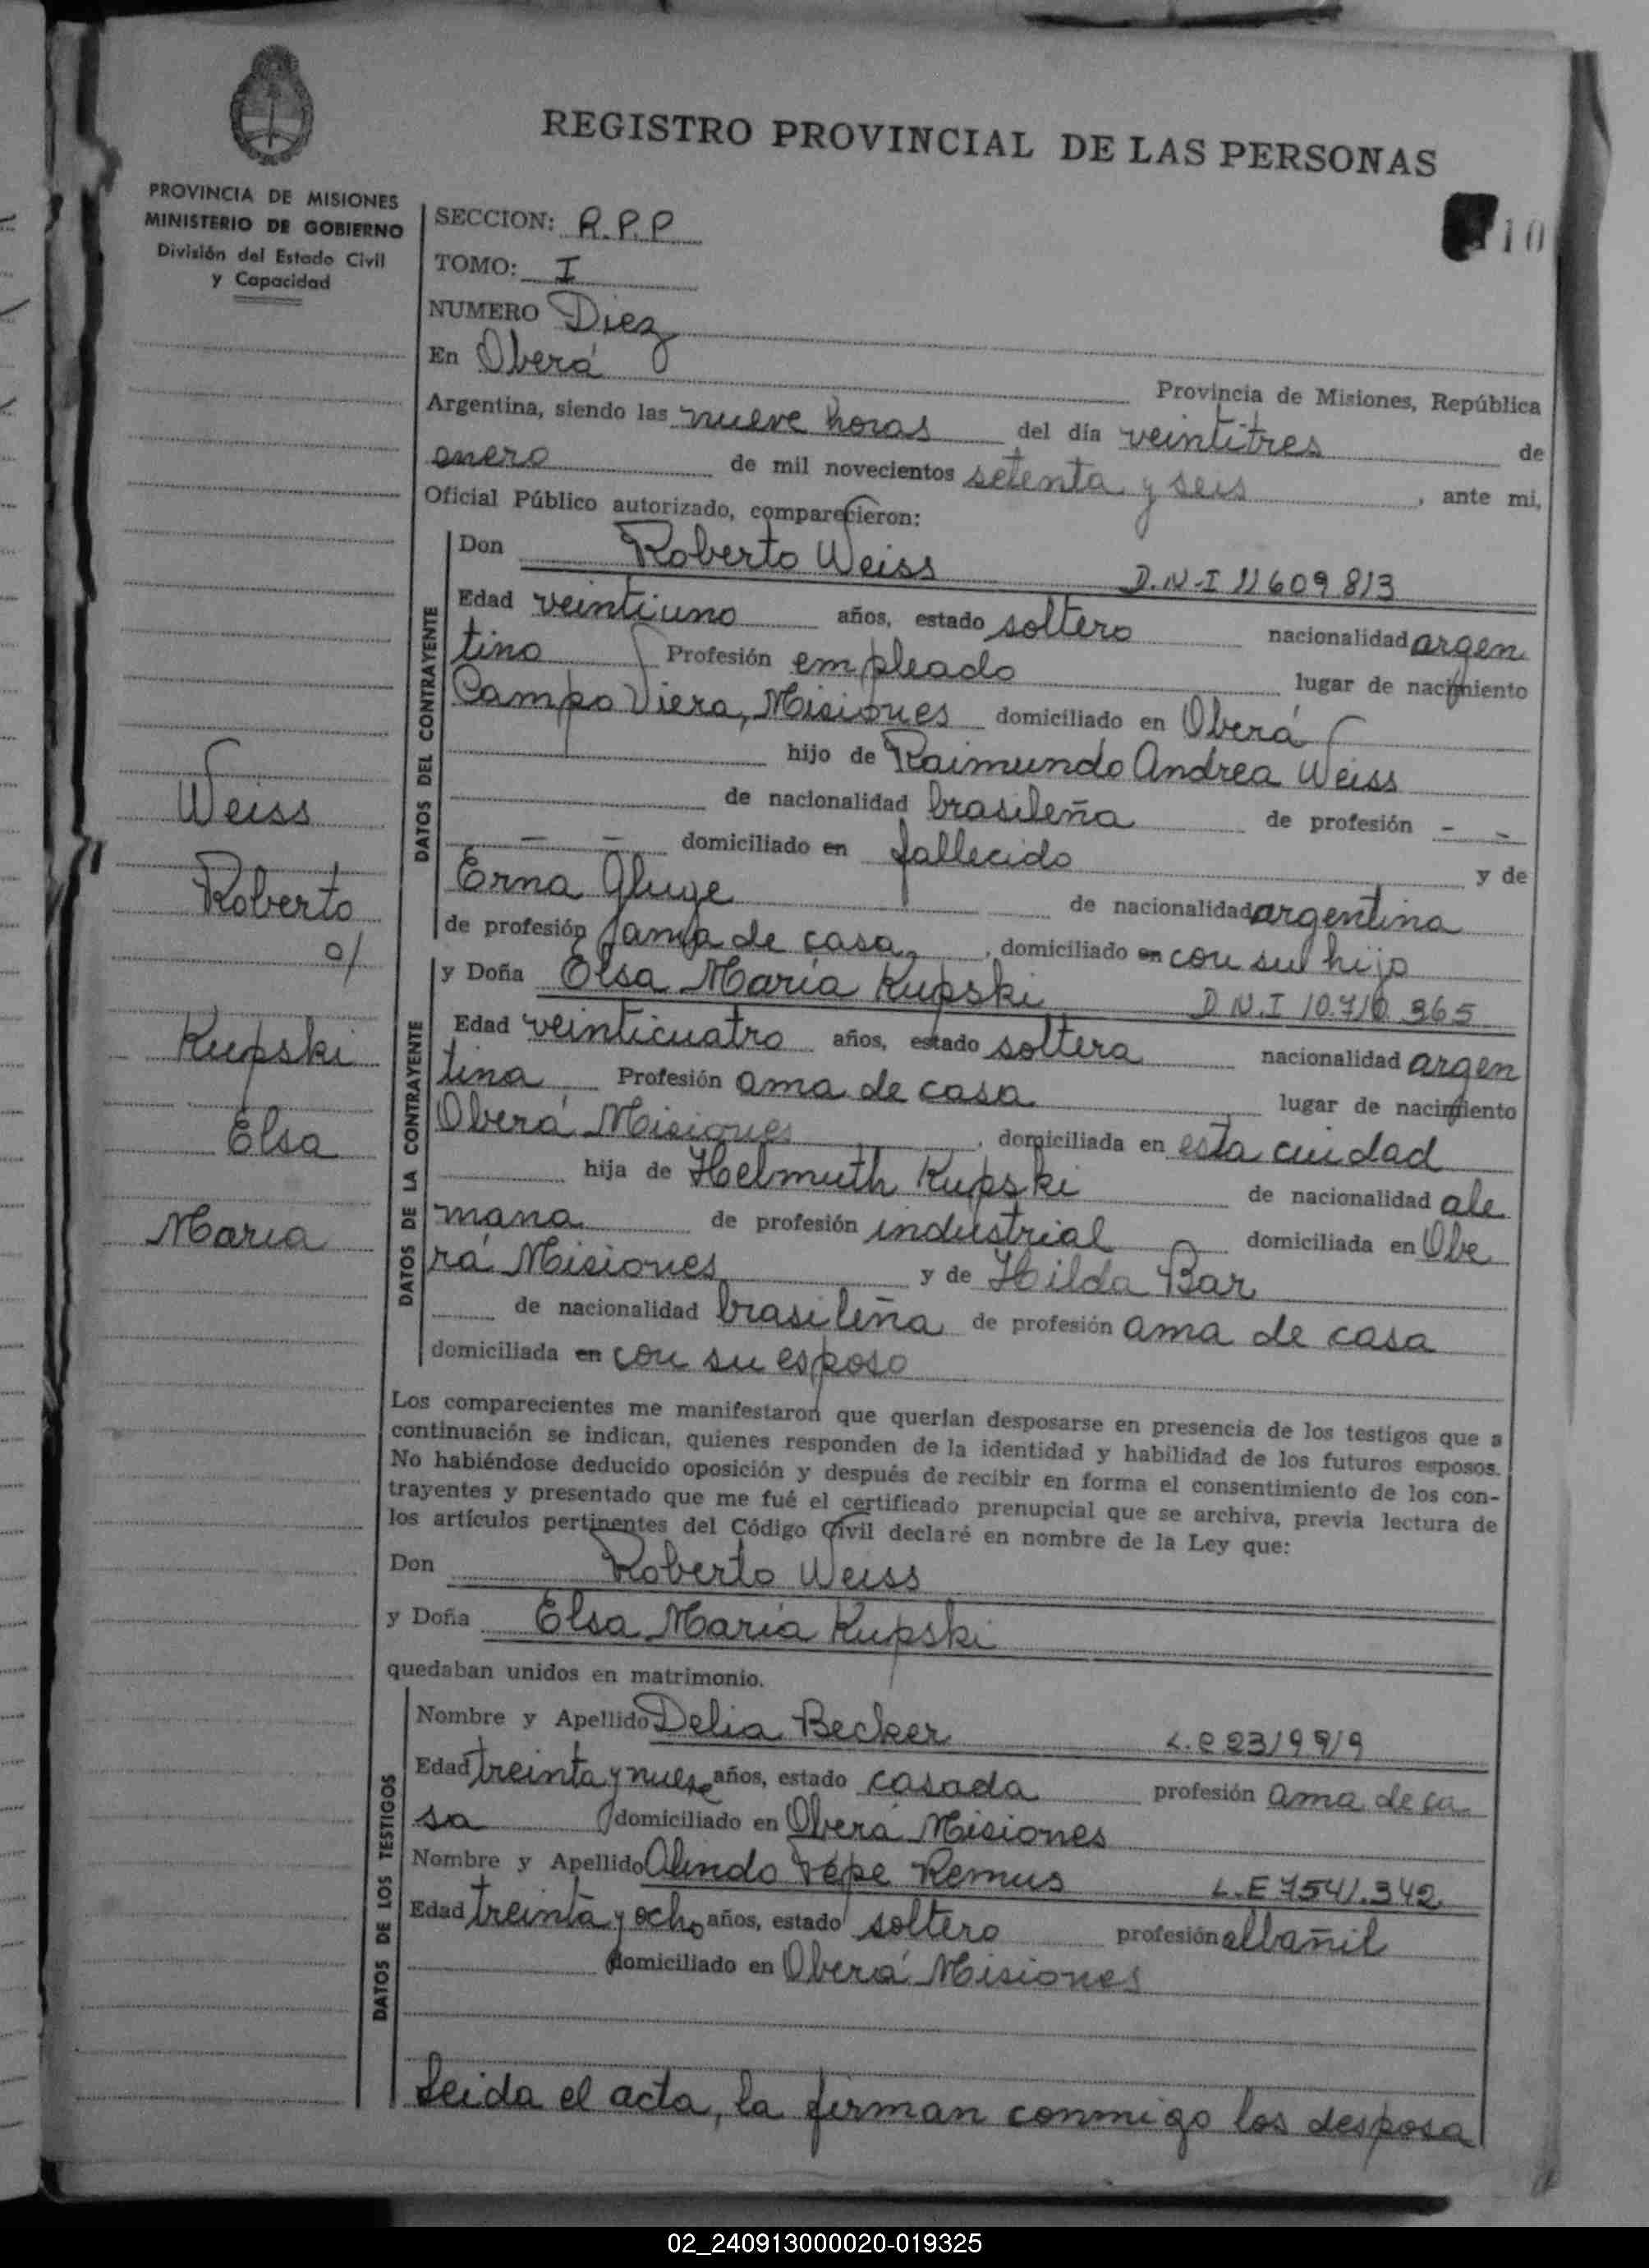 REGISTRO PROVINCIAL DE LAS PERSONAS
PROVINCIA DE MISIONES
MINISTERIO DE GOBIERNO
División del Estado Civil
y Capacidad
10
SECCION: R.P.P
TOMO: I
NUMERO Diez
En Oberá Provincia de Misiones, República
Argentina, siendo las nueve horas del día veintitres de
enero de mil novecientos setenta y seis, ante mi,
Oficial Público autorizado, comparecieron:
DATOS DEL CONTRAYENTE
Don Roberto Weiss D.N.I 11609813
Edad veintiuno años, estado soltero nacionalidad argen
tino Profesión empleado lugar de nacimiento
Campo Viera, Misiones domiciliado en Oberá
hijo de Raimundo Andrea Weiss
de nacionalidad brasileña de profesión - -
- - domiciliado en fallecido y de
Erna Gluge de nacionalidad argentina
de profesión ama de casa, domiciliado en con su hijo
DATOS DE LA CONTRAYENTE
y Doña Elsa María Kupski D.N.I 10.710.365
Edad veinticuatro años, estado soltera nacionalidad argen
tina Profesión ama de casa lugar de nacimiento
Oberá Misiones, domiciliada en esta ciudad
hija de Helmuth Kupski de nacionalidad ale
mana de profesión industrial domiciliada en Obe
rá Misiones y de Hilda Bar
de nacionalidad brasileña de profesión ama de casa
domiciliada en con su esposo
Weiss
Roberto
c/
Kupski
Elsa
Maria
Los comparecientes me manifestaron que querían desposarse en presencia de los testigos que a
continuación se indican, quienes responden de la identidad y habilidad de los futuros esposos.
No habiéndose deducido oposición y después de recibir en forma el consentimiento de los con-
trayentes y presentado que me fué el certificado prenupcial que se archiva, previa lectura de
los artículos pertinentes del Código Civil declaré en nombre de la Ley que:
Don Roberto Weiss
y Doña Elsa María Kupski
quedaban unidos en matrimonio.
DATOS DE LOS TESTIGOS
Nombre y Apellido Delia Becker L.C 2319919
Edad treinta y nueve años, estado casada profesión ama de ca
sa domiciliado en Oberá Misiones
Nombre y Apellido Olindo Pepe Remus L.E 7541.342
Edad treinta y ocho años, estado soltero profesión albañil
domiciliado en Oberá Misiones
Leida el acta, la firman conmigo los desposa
02_240913000020-019325